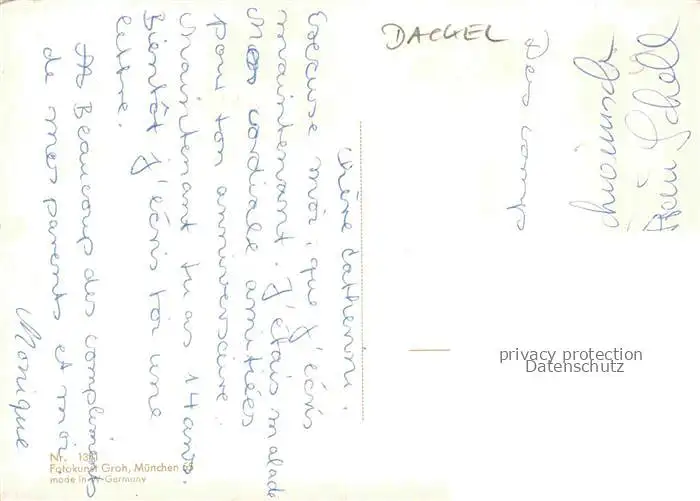 Chère Catherine.
Excuse moi, que j'écris
maintenant. J'étais malade
Mes cordiale amitiées
pour ton anniversaire.
Maintenant tu as 14 ans.
Bientôt j'écris toi une
lettre.
Beaucoup des compliments
de mes parents et moi
Monique
DACKEL
privacy protection
Datenschutz
Nr. 13
Fotokunst Groh, München 55
made in W-Germany